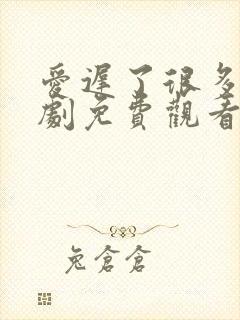 愛遲了很多
劇免費觀看
兔倉倉